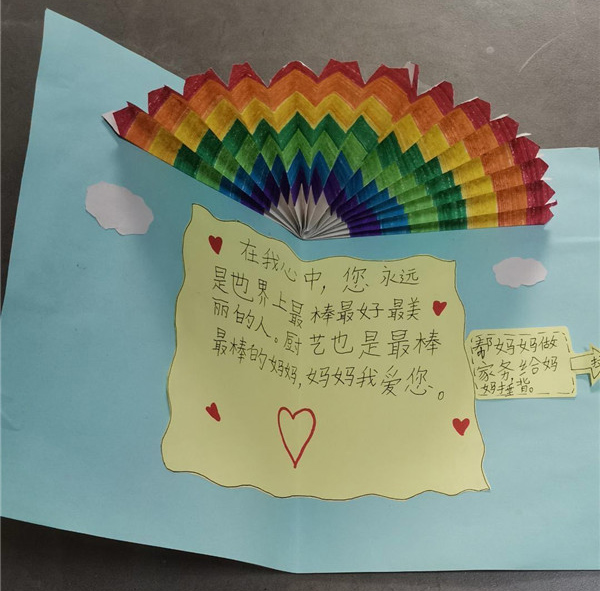 在我心中，您永远
是世界上最棒最好最美
丽的人。厨艺也是最棒
最棒的妈妈，妈妈我爱您。
帮妈妈做
家务，给妈
妈捶背。